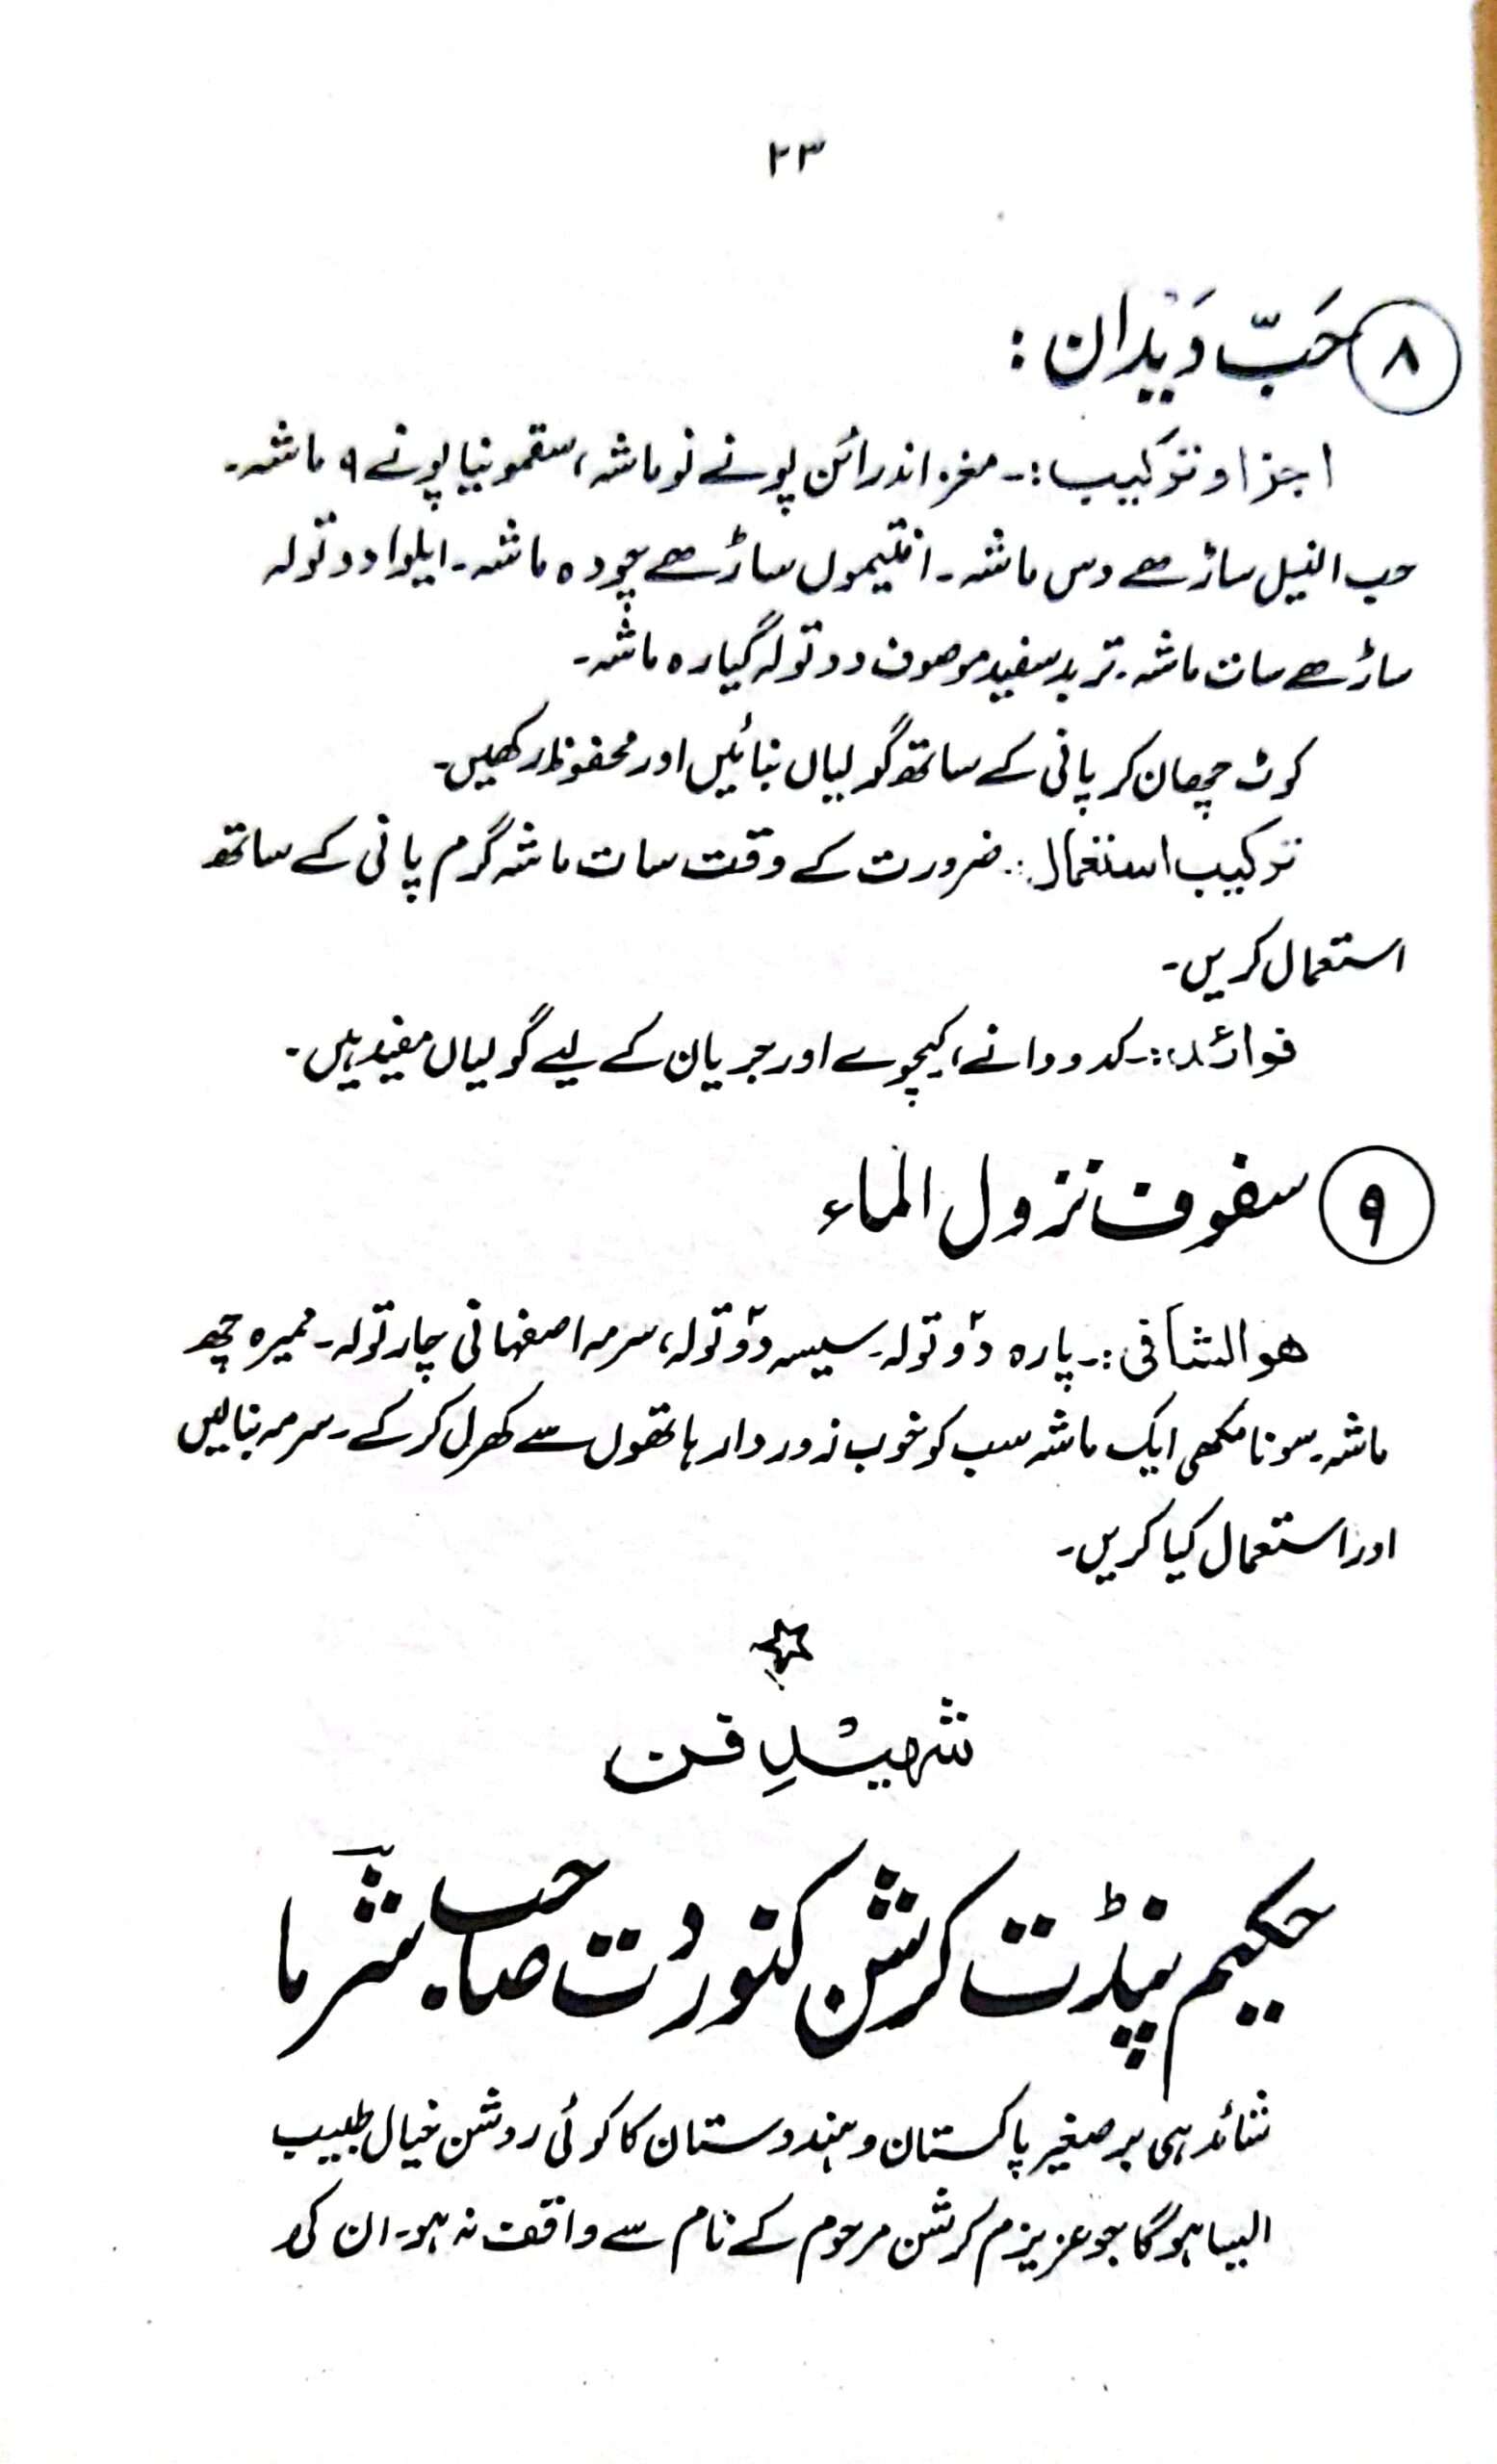 ۲۳
۸ حَبّ دَیدان :
اجزا و ترکیب :۔ مغز اندرائن پونے نو ماشہ، سقمونیا پونے ۹ ماشہ۔
حب النیل ساڑھے دس ماشہ۔ افتیمول ساڑھے چودہ ماشہ۔ ایلوا دو تولہ
ساڑھے سات ماشہ۔ تربد سفید موصوف دو تولہ گیارہ ماشہ۔
کوٹ چھان کر پانی کے ساتھ گولیاں بنائیں اور محفوظ رکھیں۔
ترکیب استعمال :۔ ضرورت کے وقت سات ماشہ گرم پانی کے ساتھ
استعمال کریں۔
فوائد :۔ کدو دانے، کیچوے اور جریان کے لیے گولیاں مفید ہیں۔
۹ سفوف نزول الماء
ھو الشافی :۔ پارہ دو تولہ۔ سیسہ دو تولہ، سرمہ اصفہانی چار تولہ۔ ممیرہ چھ
ماشہ۔ سونا مکھی ایک ماشہ سب کو خوب زور دار ہاتھوں سے کھرل کر کے۔ سرمہ بنا لیں
اور استعمال کیا کریں۔
شہیدِ فن
حکیم پنڈت کرشن کنور دت صاحب شرما
شائد ہی برصغیر پاکستان و ہندوستان کا کوئی روشن خیال طبیب
ایسا ہو گا جو عزیزم کرشن مرحوم کے نام سے واقف نہ ہو۔ ان کی